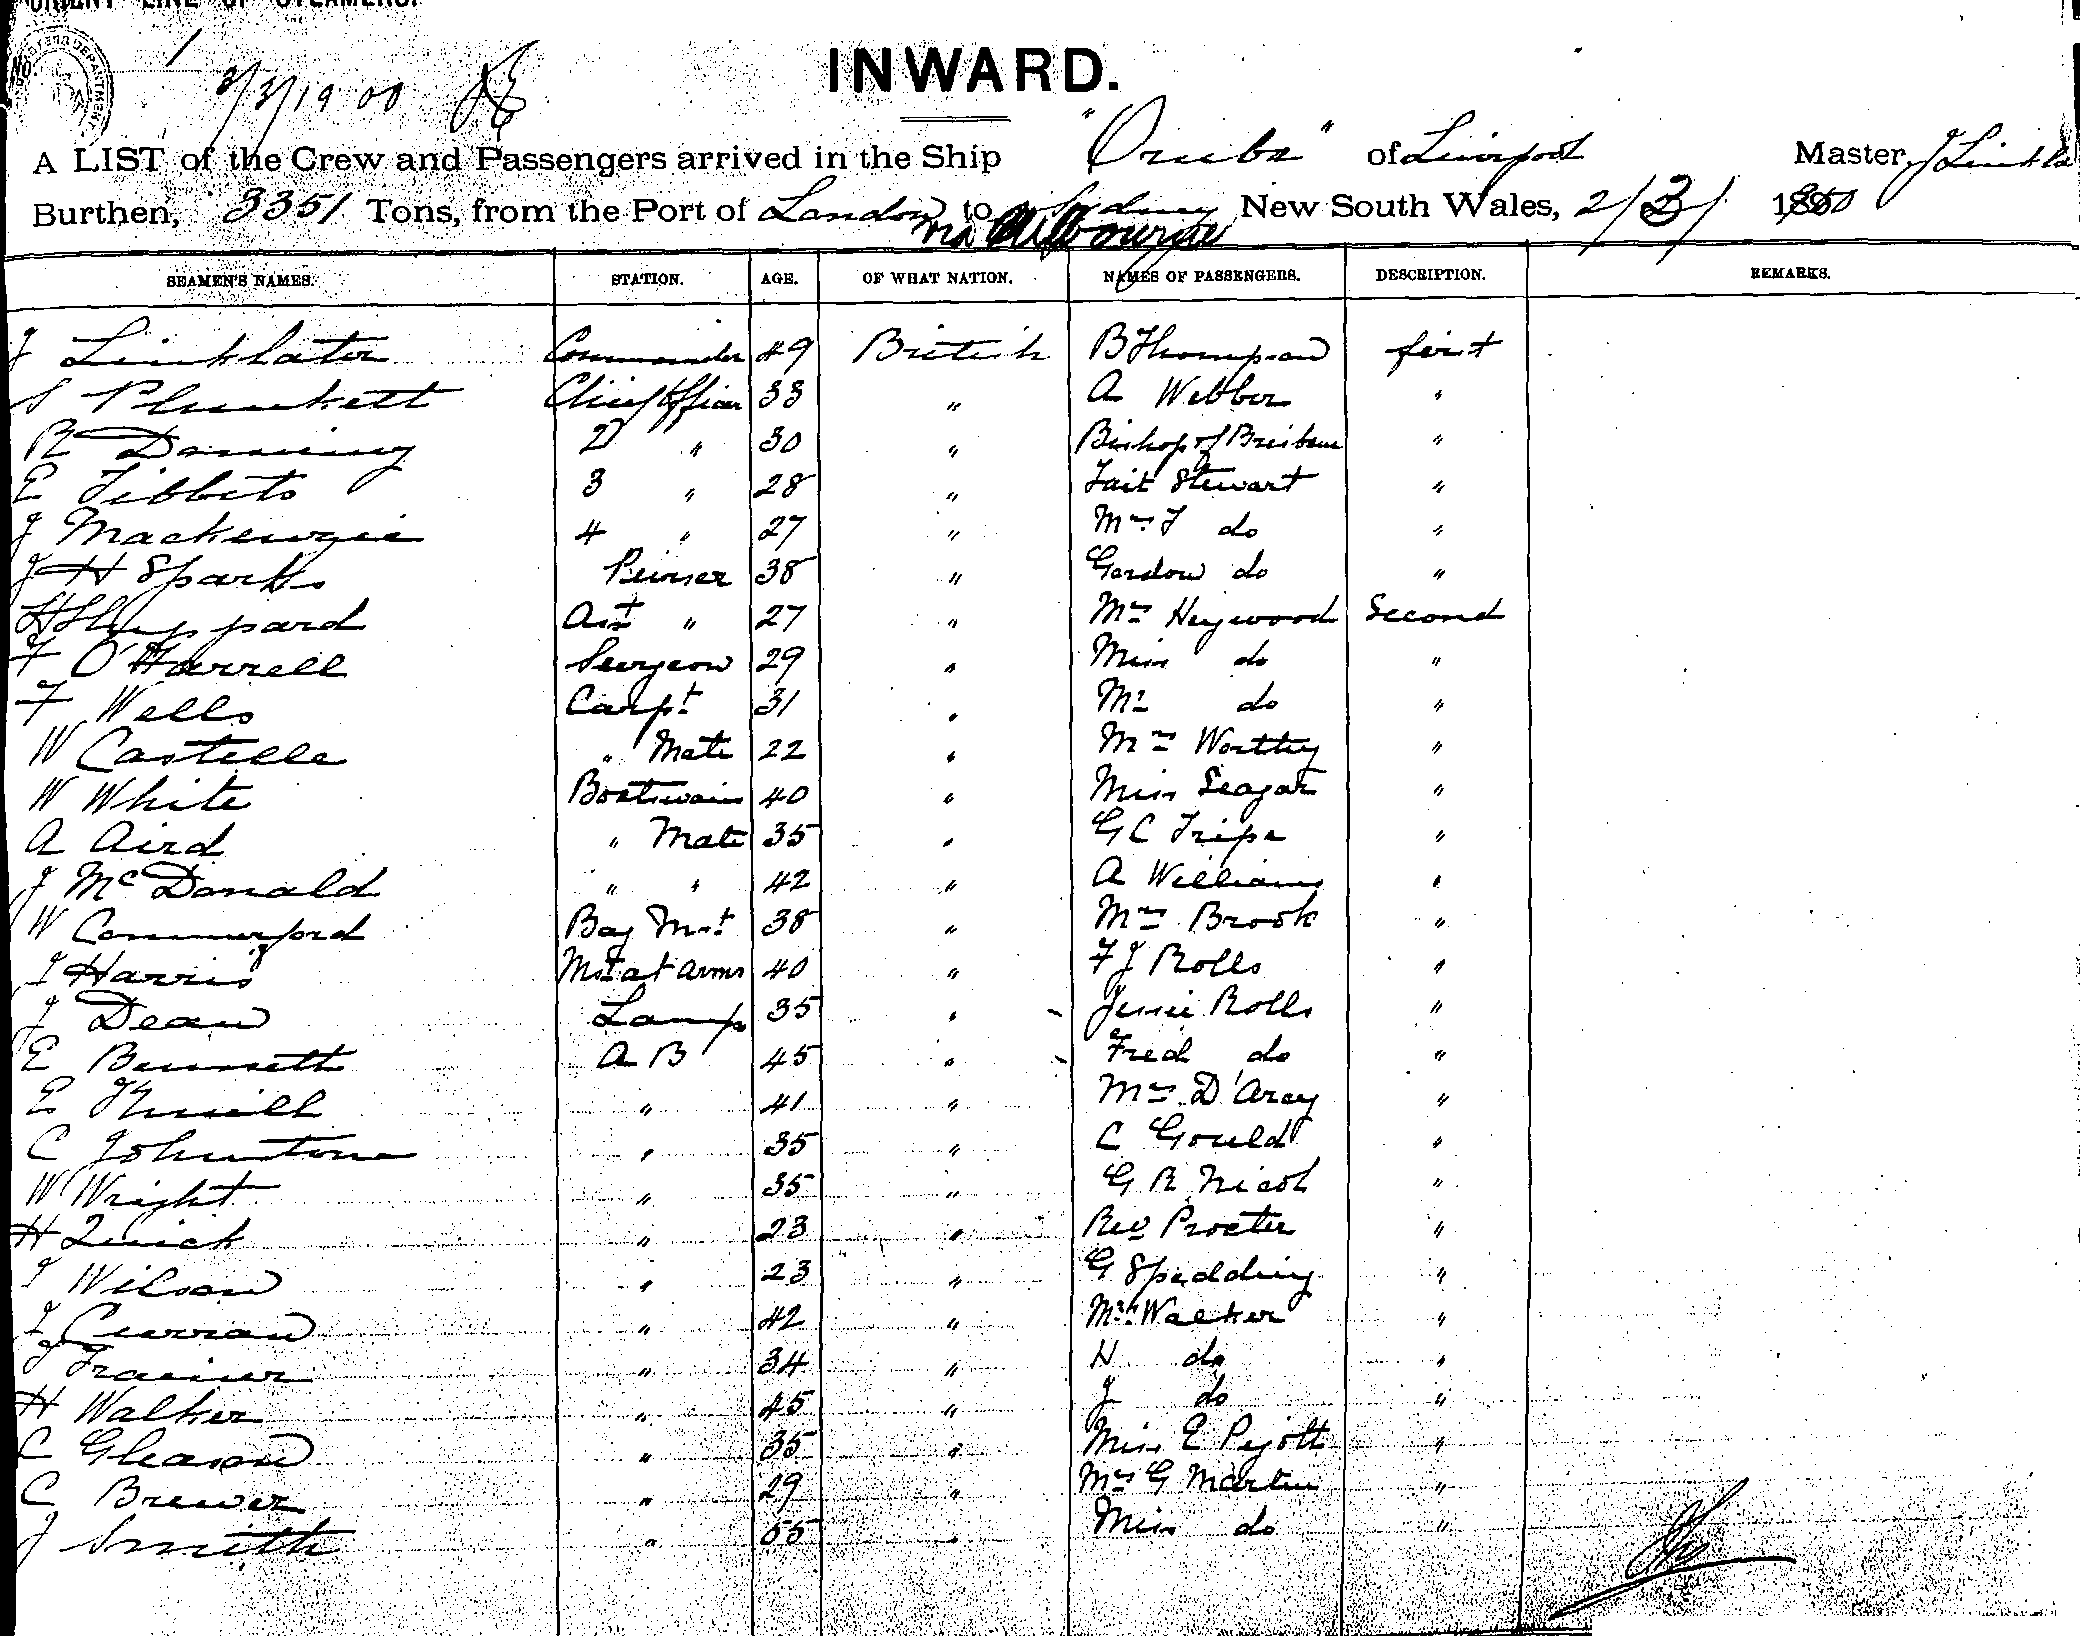 ORIENT LINE OF STEAMERS.
1
2/3/1900
INWARD.
A LIST of the Crew and Passengers arrived in the Ship "Oruba" of Liverpool Master, J Linkla
Burthen, 3351 Tons, from the Port of London to Sydney New South Wales, 2/3/ 1900
via Melbourne
SEAMEN'S NAMES. STATION. AGE. OF WHAT NATION. NAMES OF PASSENGERS. DESCRIPTION. REMARKS.
J Linklater Commander 49 British B Thompson first
S Plunkett Chief Officer 33 " A Webber "
R Downing 2 " 30 " Bishop of Brisbane "
E Tibbets 3 " 28 " Tait Stewart "
J Mackenzie 4 " 27 " Mrs T do "
J H Sparks Purser 38 " Gordon do "
H Sheppard Asst " 27 " Mrs Heywood Second
F O'Harrell Surgeon 29 " Miss do "
F Wells Carpt 31 " Mr do "
W Castelle " Mate 22 " Mrs Worthy "
W White Boatswain 40 " Miss Seagar "
A Aird " Mate 35 " G C Tripe "
J McDonald " " 42 " A Williams "
W Commerford Bag Mst 38 " Mrs Brook "
J Harris Mst at Arms 40 " F J Rolls "
J Dean Lamps 35 " Jessie Rolls "
E Bennett A B 45 " Fred do "
E " 41 " Mrs D'Arcy "
C Johnstone " 35 " C Gould "
W Wright " 35 " G R Nicol "
H Quick " 23 " Rev Procter "
J Wilson " 23 " G Spedding "
J Curran " 42 " Mrs Walker "
J Trainor " 34 " H do "
H Walker " 45 " J do "
C Gleason " 35 " Miss E Pigott "
C Brewer " 29 " Mrs G Martin "
J Smith " 55 " Miss do "